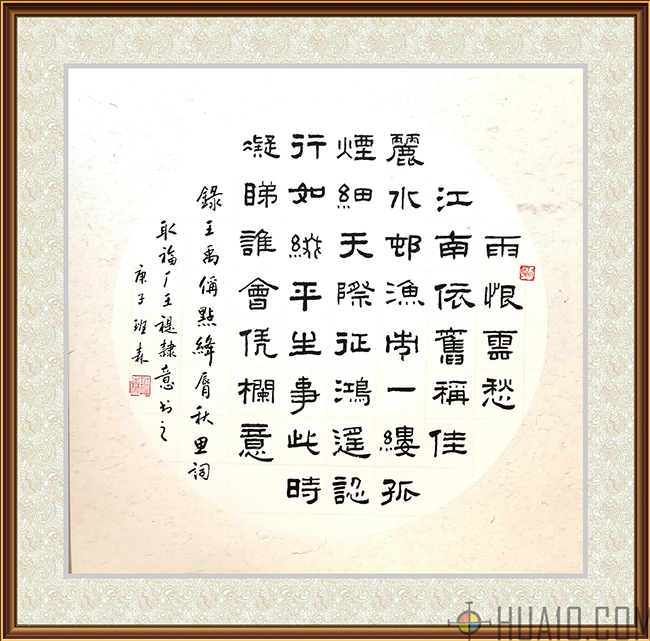 雨恨雲愁
江南依舊稱佳
麗水邨漁市一縷孤
煙細天際征鴻遙認
行如綴平生事此時
凝睇誰會凭欄意
錄王禹偁點絳脣秋思詞
取福厂王禔隸意书之
庚子班森
HUA10.COM